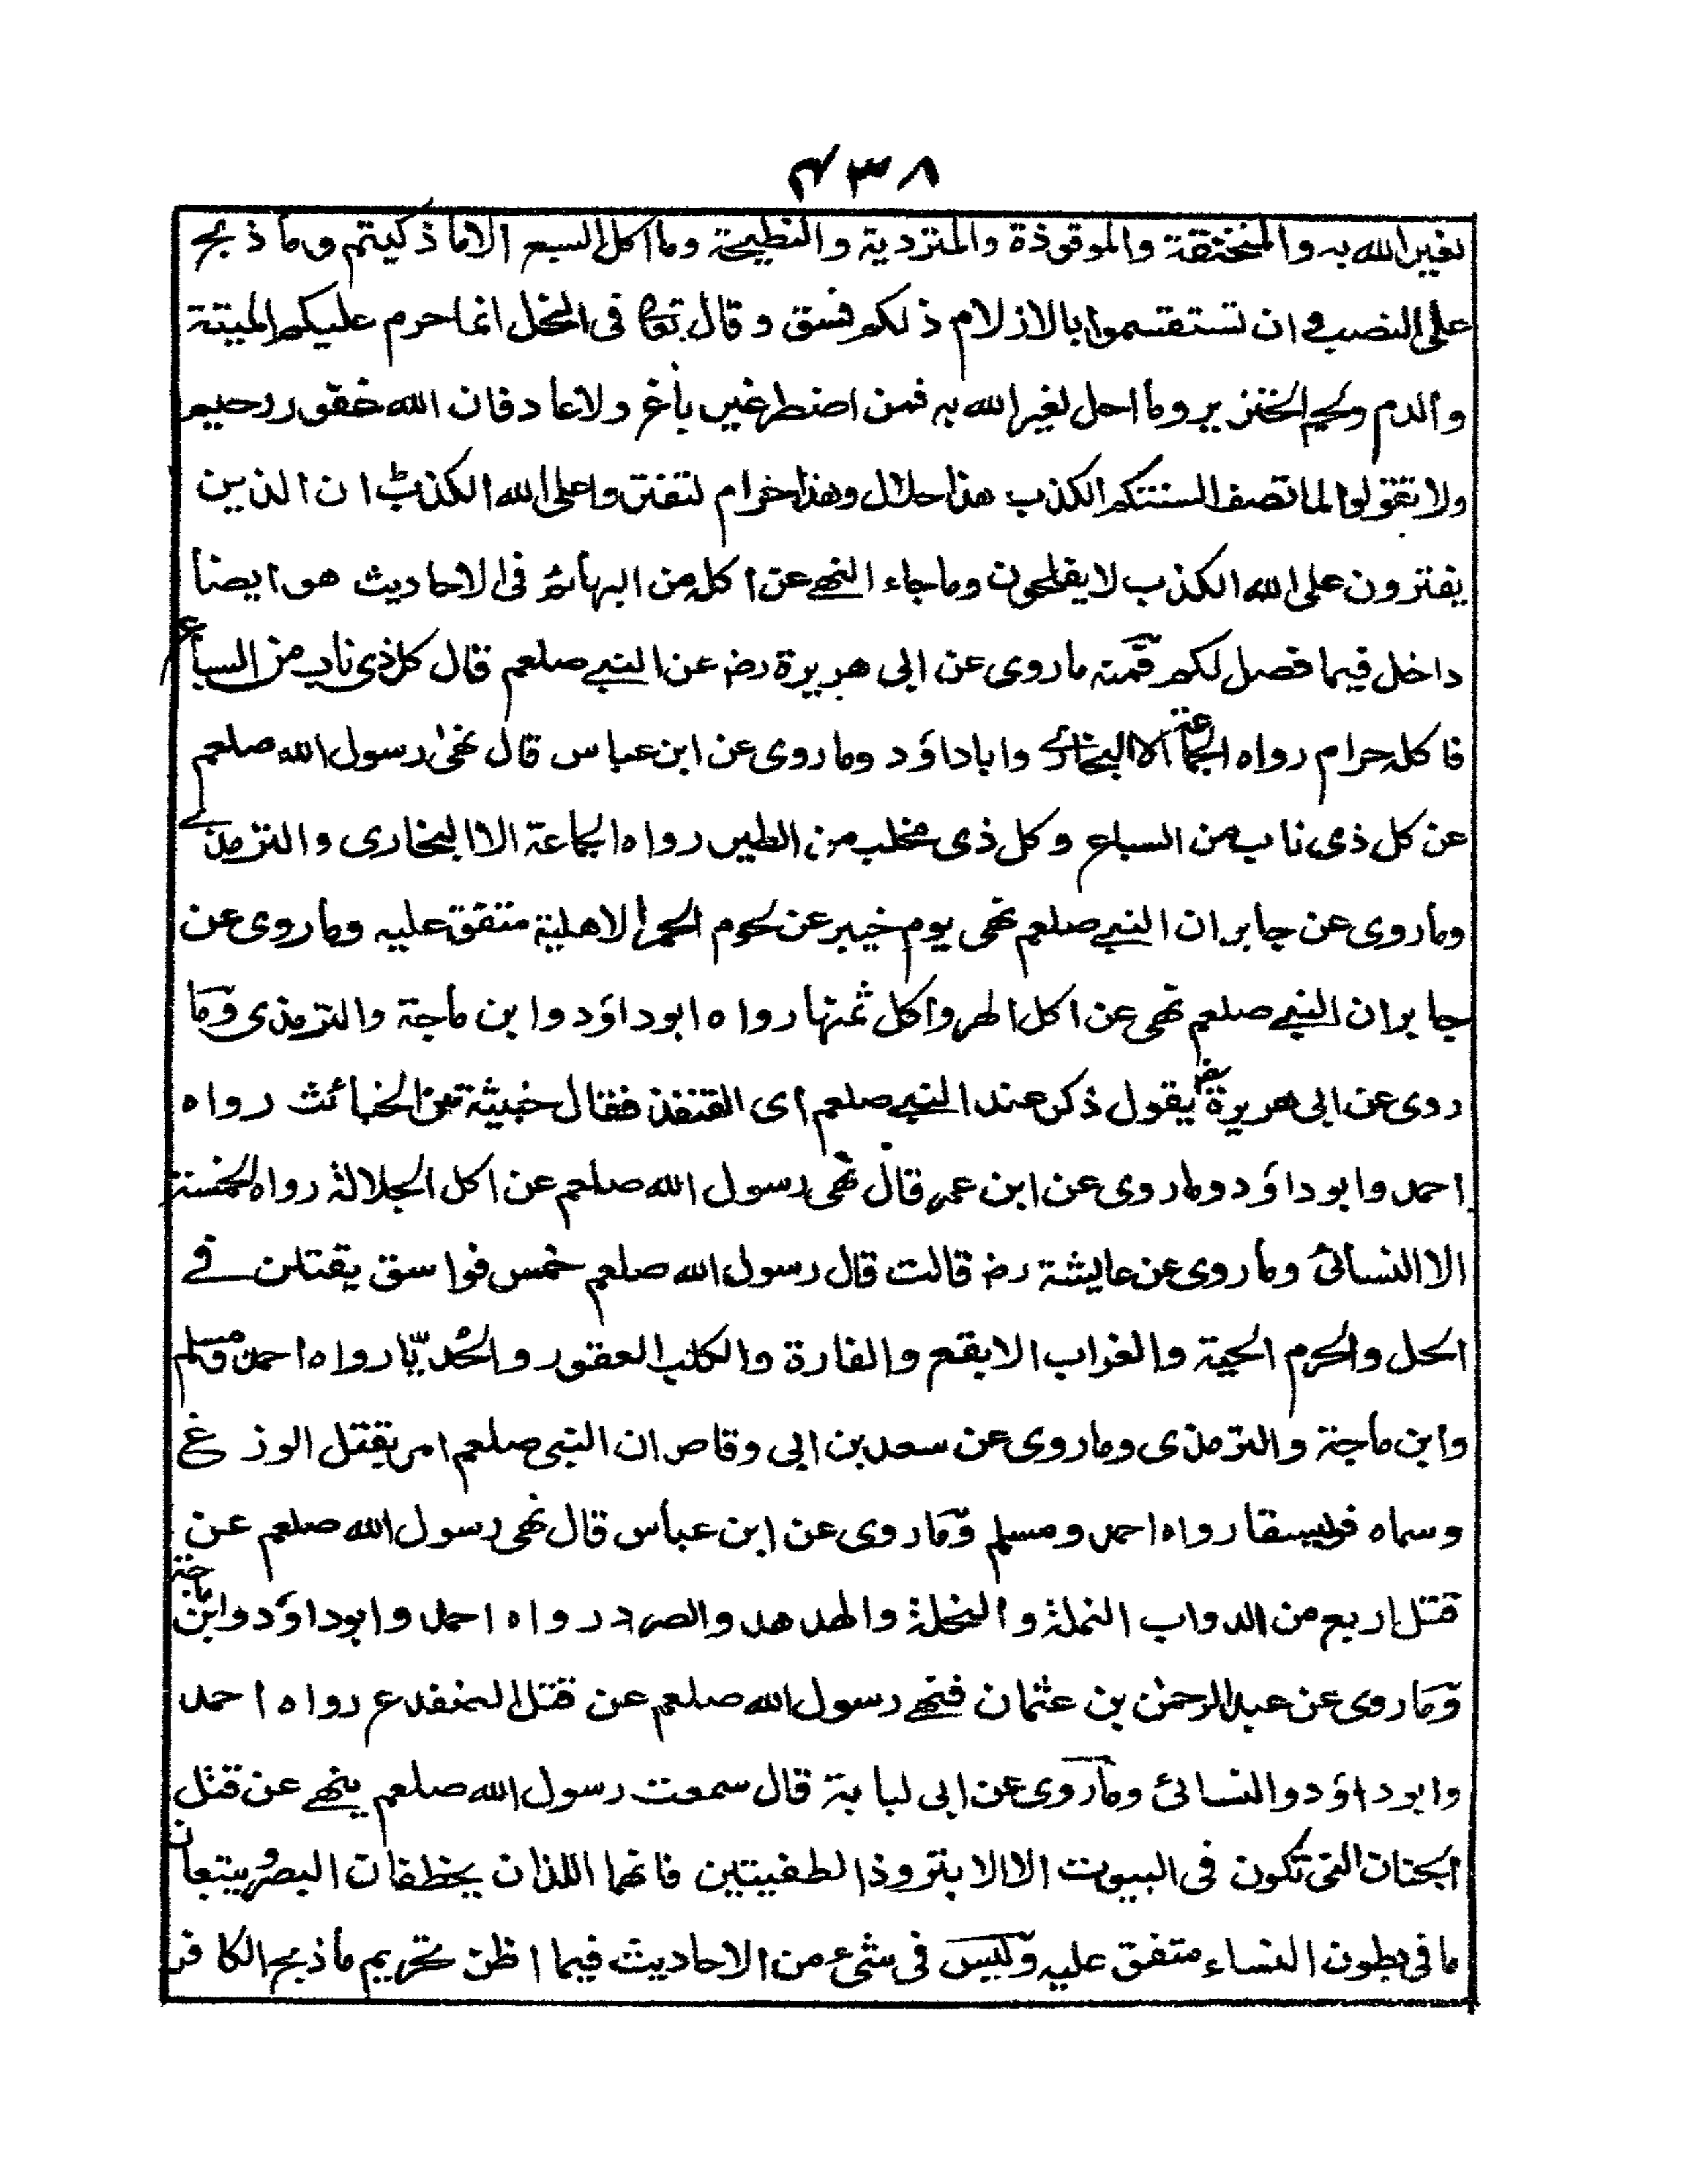 ۴۳۸
لغیر الله به والمنخنقة والموقوذة والمتردية والنطيحة وما اكل السبع الا ما ذكيتم وما ذبح
على النصب و ان تستقسموا بالازلام ذلكم فسق و قال تعا فى النحل انما حرم عليكم الميتة
والدم ولحم الخنزير وما اهل لغير الله به فمن اضطر غير باغ ولا عاد فان الله غفور رحيم
ولا تقولوا لما تصف السنتكم الكذب هذا حلال وهذا حرام لتفتروا على الله الكذب ان الذين
يفترون على الله الكذب لا يفلحون وما جاء النهے عن اكله من البهائم فى الاحاديث هو ايضا
داخل فيما فصل لكم فمنه ما روى عن ابى هريرة رض عن النبے صلعم قال كل ذى ناب من السباع
فاكله حرام رواه الجماعة الا البخارے وابا داؤد وما روى عن ابن عباس قال نهىٰ رسول الله صلعم
عن كل ذى ناب من السباع وكل ذى مخلب من الطير رواه الجماعة الا البخارى والترمذے
وما روى عن جابر ان النبے صلعم نهى يوم خيبر عن لحوم الحمر الاهلية متفق عليه وما روى عن
جابر ان النبے صلعم نهى عن اكل الهر واكل ثمنها رواه ابوداؤد وابن ماجة والترمذى وما
روى عن ابى هريرة رض يقول ذكر عند النبے صلعم اى القنفذ فقال خبيثة من الخبائث رواه
احمد وابوداؤد وما روى عن ابن عمر قال نهى رسول الله صلعم عن اكل الجلالة رواه الخمسة
الا النسائى وما روى عن عايشة رض قالت قال رسول الله صلعم خمس فواسق يقتلن فے
الحل والحرم الحية والغراب الابقع والفارة والكلب العقور والحُديّا رواه احمد ومسلم
وابن ماجة والترمذى وما روى عن سعد بن ابى وقاص ان النبى صلعم امر بقتل الوزغ
وسماه فويسقا رواه احمد ومسلم وما روى عن ابن عباس قال نهى رسول الله صلعم عن
قتل اربع من الدواب النملة والنحلة والهدهد والصرد رواه احمد وابوداؤد وابن ماجة
وما روى عن عبدالرحمٰن بن عثمان فنهے رسول الله صلعم عن قتل الضفدع رواه احمد
وابوداؤد والنسائى وما روى عن ابى لبابة قال سمعت رسول الله صلعم ينهے عن قتل
الجنان التى تكون فى البيوت الا الابتر وذا الطفيتين فانهما اللذان يخطفان البصر ويتبعان
ما فى بطون النساء متفق عليه وليس فى شىء من الاحاديث فيما اظن تحريم ما ذبح الكافر